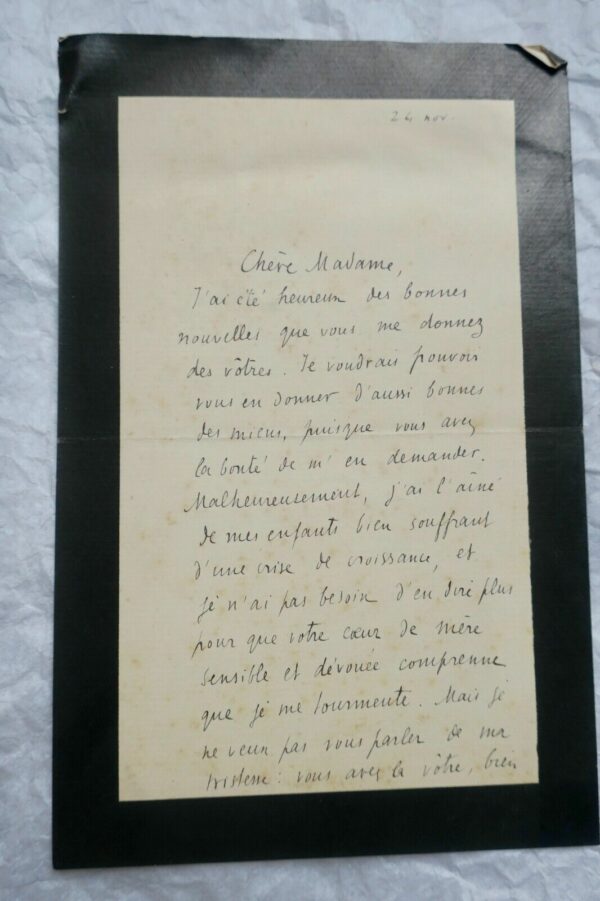 24 nov.
Chère Madame,
J'ai été heureux des bonnes
nouvelles que vous me donnez
des vôtres. Je voudrais pouvoir
vous en donner d'aussi bonnes
des miens, puisque vous avez
la bonté de m'en demander.
Malheureusement, j'ai l'aîné
de mes enfants bien souffrant
d'une crise de croissance, et
je n'ai pas besoin d'en dire plus
pour que votre cœur de mère
sensible et dévouée comprenne
que je me tourmente. Mais je
ne veux pas vous parler de ma
tristesse : vous avez la vôtre, bien